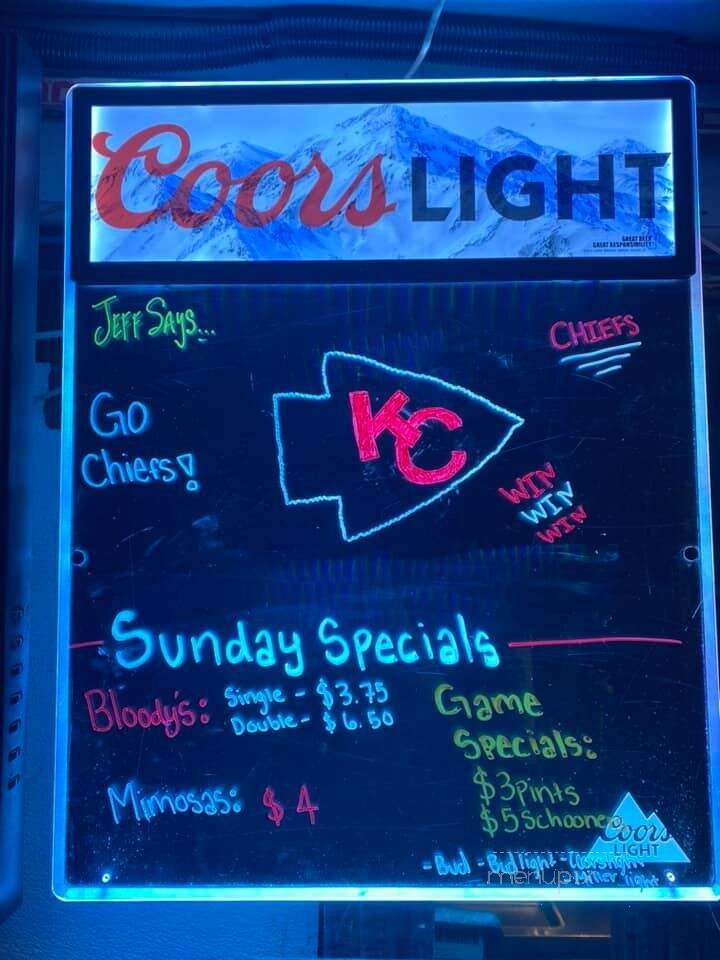 Coors LIGHT
GREAT BEER
GREAT RESPONSIBILITY
JEFF SAYS...
CHIEFS
GO
Chiefs!
KC
WIN
WIN
WIN
Sunday Specials
Bloody's: Single - $3.75
Double - $6.50
Mimosas: $4
Game
Specials:
$3 pints
$5 Schooners
Coors
LIGHT
- Bud - Bud light - Coors light
- Miller light
menupix